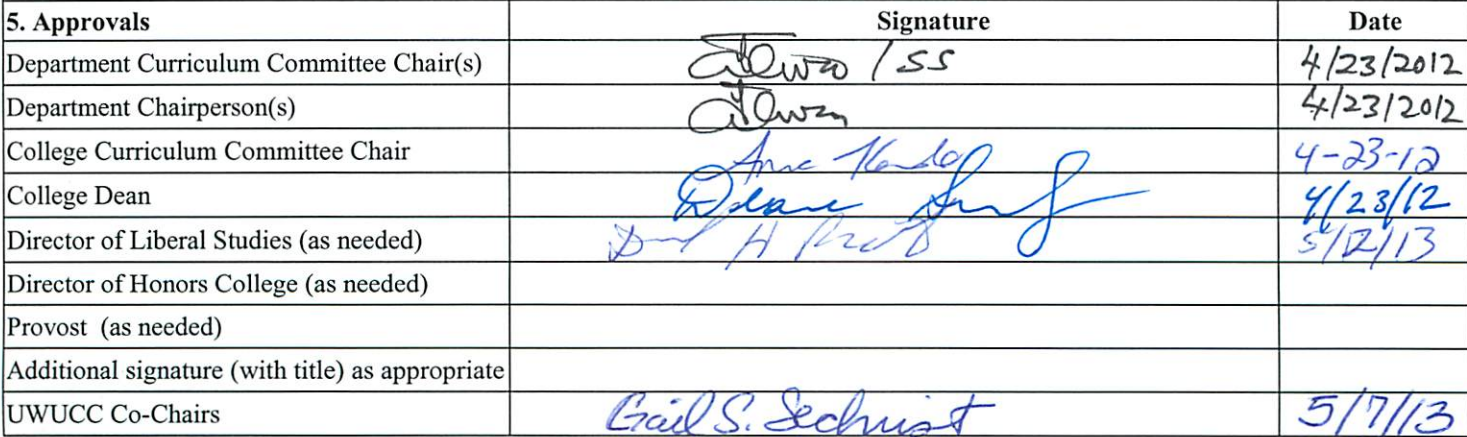 5. Approvals Signature Date
Department Curriculum Committee Chair(s) /SS 4/23/2012
Department Chairperson(s) 4/23/2012
College Curriculum Committee Chair 4-23-12
College Dean 4/23/12
Director of Liberal Studies (as needed) 5/12/13
Director of Honors College (as needed)
Provost (as needed)
Additional signature (with title) as appropriate
UWUCC Co-Chairs Gail S. Sechrist 5/7/13